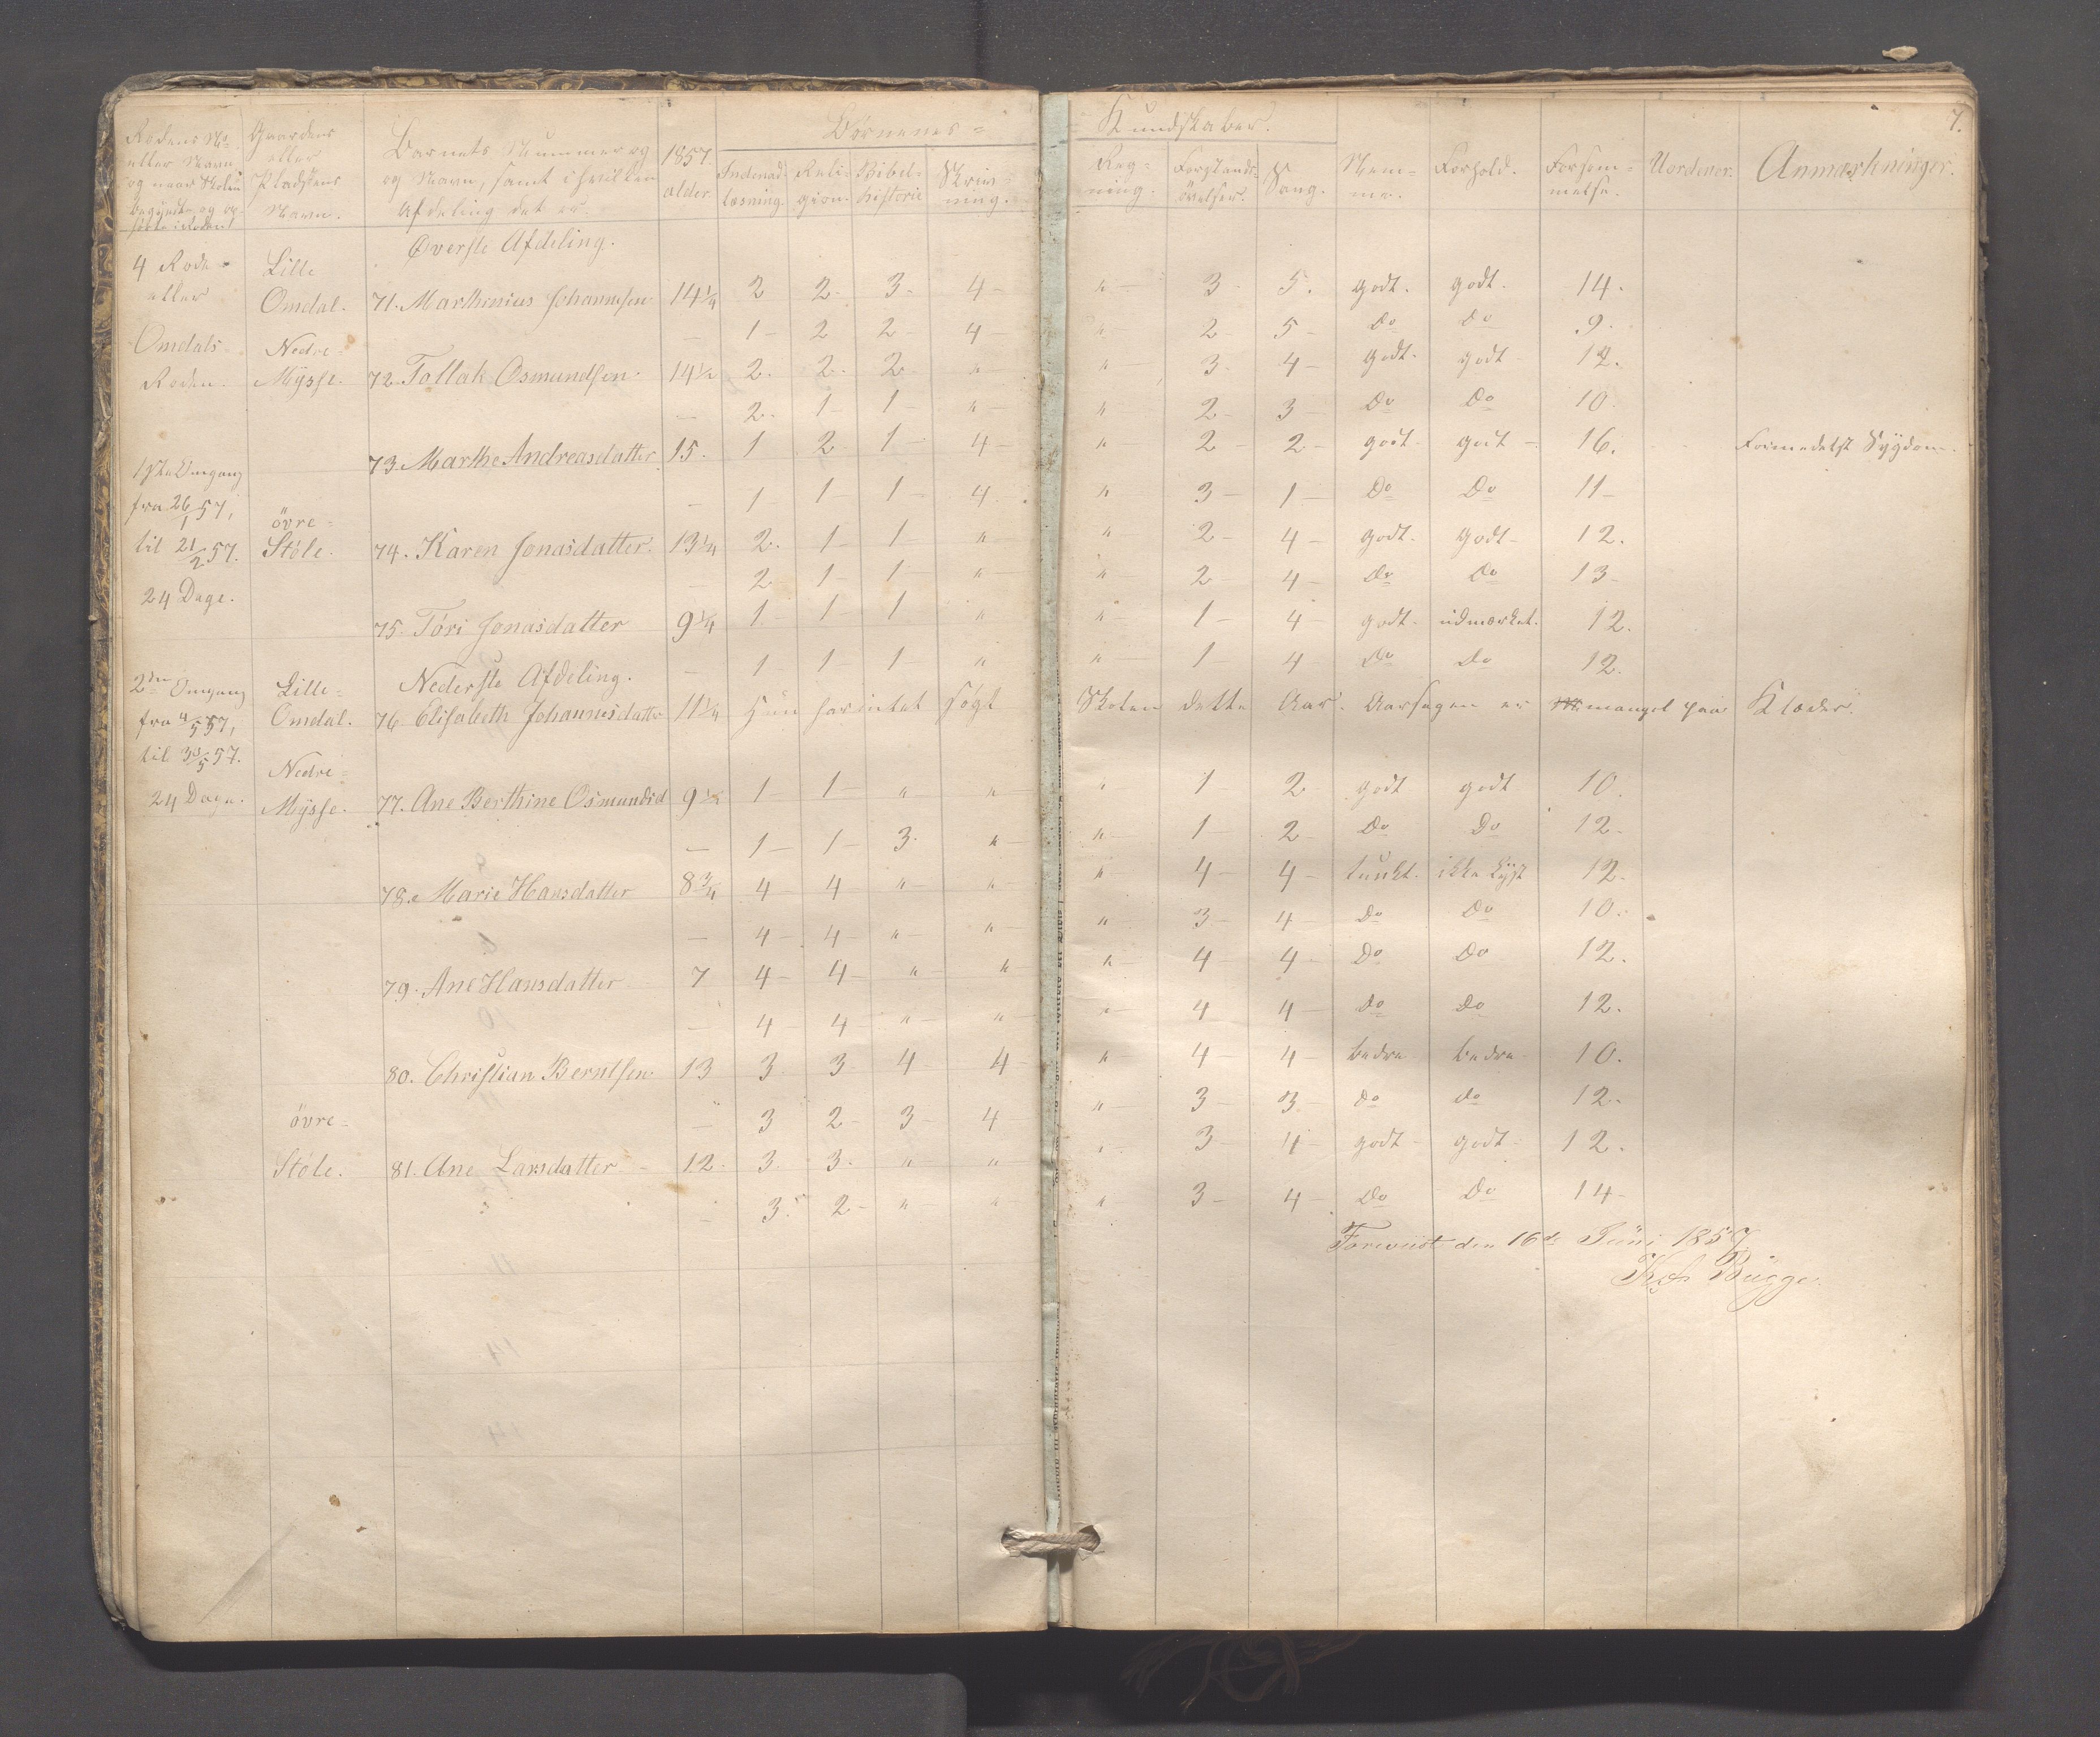 7.
Rodens No. eller Navn og naar Skolen begyndte og op- | Gaardens eller Pladsens Navn. | Barnets Nummer og og Navn, samt i hvilken Afdeling det er. | 1857. alder. | Børnenes = Kundskaber.
Indenad- læsning. | Reli- gion. | Bibel- historie | Skriv- ning. | Reg- ning. | Forstands- øvelser. | Sang. | Nem- me. | Forhold. | Forsøm- melse. | Uordener. | Anmærkninger.
Øverste Afdeling.
4 Rode = eller Omdals Roden.
Lille Omdal. 71. Marthinius Johannesen 14 1/4 2 2 3 4 " 3 5. godt. godt. 14.
— 1 2 2 4 " 2 5 Do Do 9.
Nedre = Mysse. 72. Tollak Osmundsen 14 1/2 2. 2. 2 " " 3 4 godt. godt 12.
— 2. 1 1 " " 2 3 Do Do 10.
73. Marthe Andreasdatter 15. 1 2 1 4 " 2 2 godt godt 16. Formedelst Sygdom.
— 1 1 1 4. " 3 1 Do Do 11
1ste Omgang
fra 26/1 57,
til 21/2 57.
24 Dage.
övre = Støle. 74. Karen Jonasdatter. 13 1/4 2. 1 1 " " 2 4 godt. godt 12.
2 1 1 " " 2 4 Do Do 13
75. Töri Jonasdatter 9 1/4 1 1 1 " " 1 4 godt. udmærket. 12.
— 1 1 1 " " 1 4 Do Do 12.
Nederste Afdeling.
2den Omgang
fra 4/5 57,
til 30/5 57.
24 Dage.
Lille = Omdal. 76 Elisabeth Johannesdatter 11 1/4 Hun har intet søgt Skolen dette Aar. Aarsagen er mangel paa Klæder.
Nedre = Mysse. 77. Ane Berthine Osmundsd 9 1/2 1 1 " " " 1 2 godt godt 10.
— 1 1 3. " " 1 2 Do Do 12.
78. Marie Hansdatter 8 3/4 4 4 " " " 4 4 tungt. ikke Lyst 12.
— 4 4 " " " 3 4 Do Do 10.
79. Ane Hansdatter 7 4 4 " " " 4 4 Do Do 12.
— 4 4 " " " 4 4 do do 12.
80. Christian Berntsen 13 3 3 4 4 " 4 4 bedre bedre 10.
— 3 2 3 4 " 3 3 do do 12.
övre = Støle. 81. Ane Larsdatter 12. 3. 3. " " " 3 4 godt godt 12.
— 3. 2 " " " 3 4 Do Do 14
Foreviist den 16de Juni 1857
Bugge.